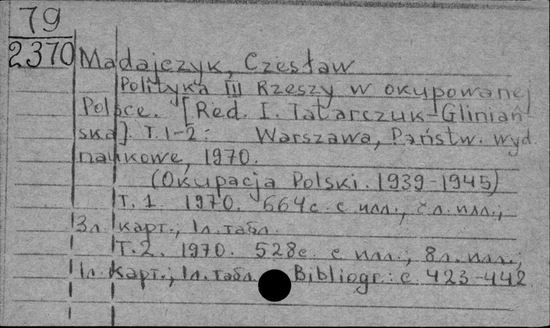 79
2370
Madajczyk, Czesław
Polityka III Rzeszy w okupowanej
Polsce. [Red. I. Tatarczuk-Gliniań-
ska]. T. 1-2. Warszawa, Państw. wyd.
naukowe, 1970.
(Okupacja Polski. 1939-1945)
T. 1. 1970. 664 с. с илл., л. илл.,
3 л. карт., 1 л. табл.
T. 2. 1970. 528 с. с илл., 8 л. илл.,
1 л. карт., 1 л. табл. Bibliogr.: с 423-442